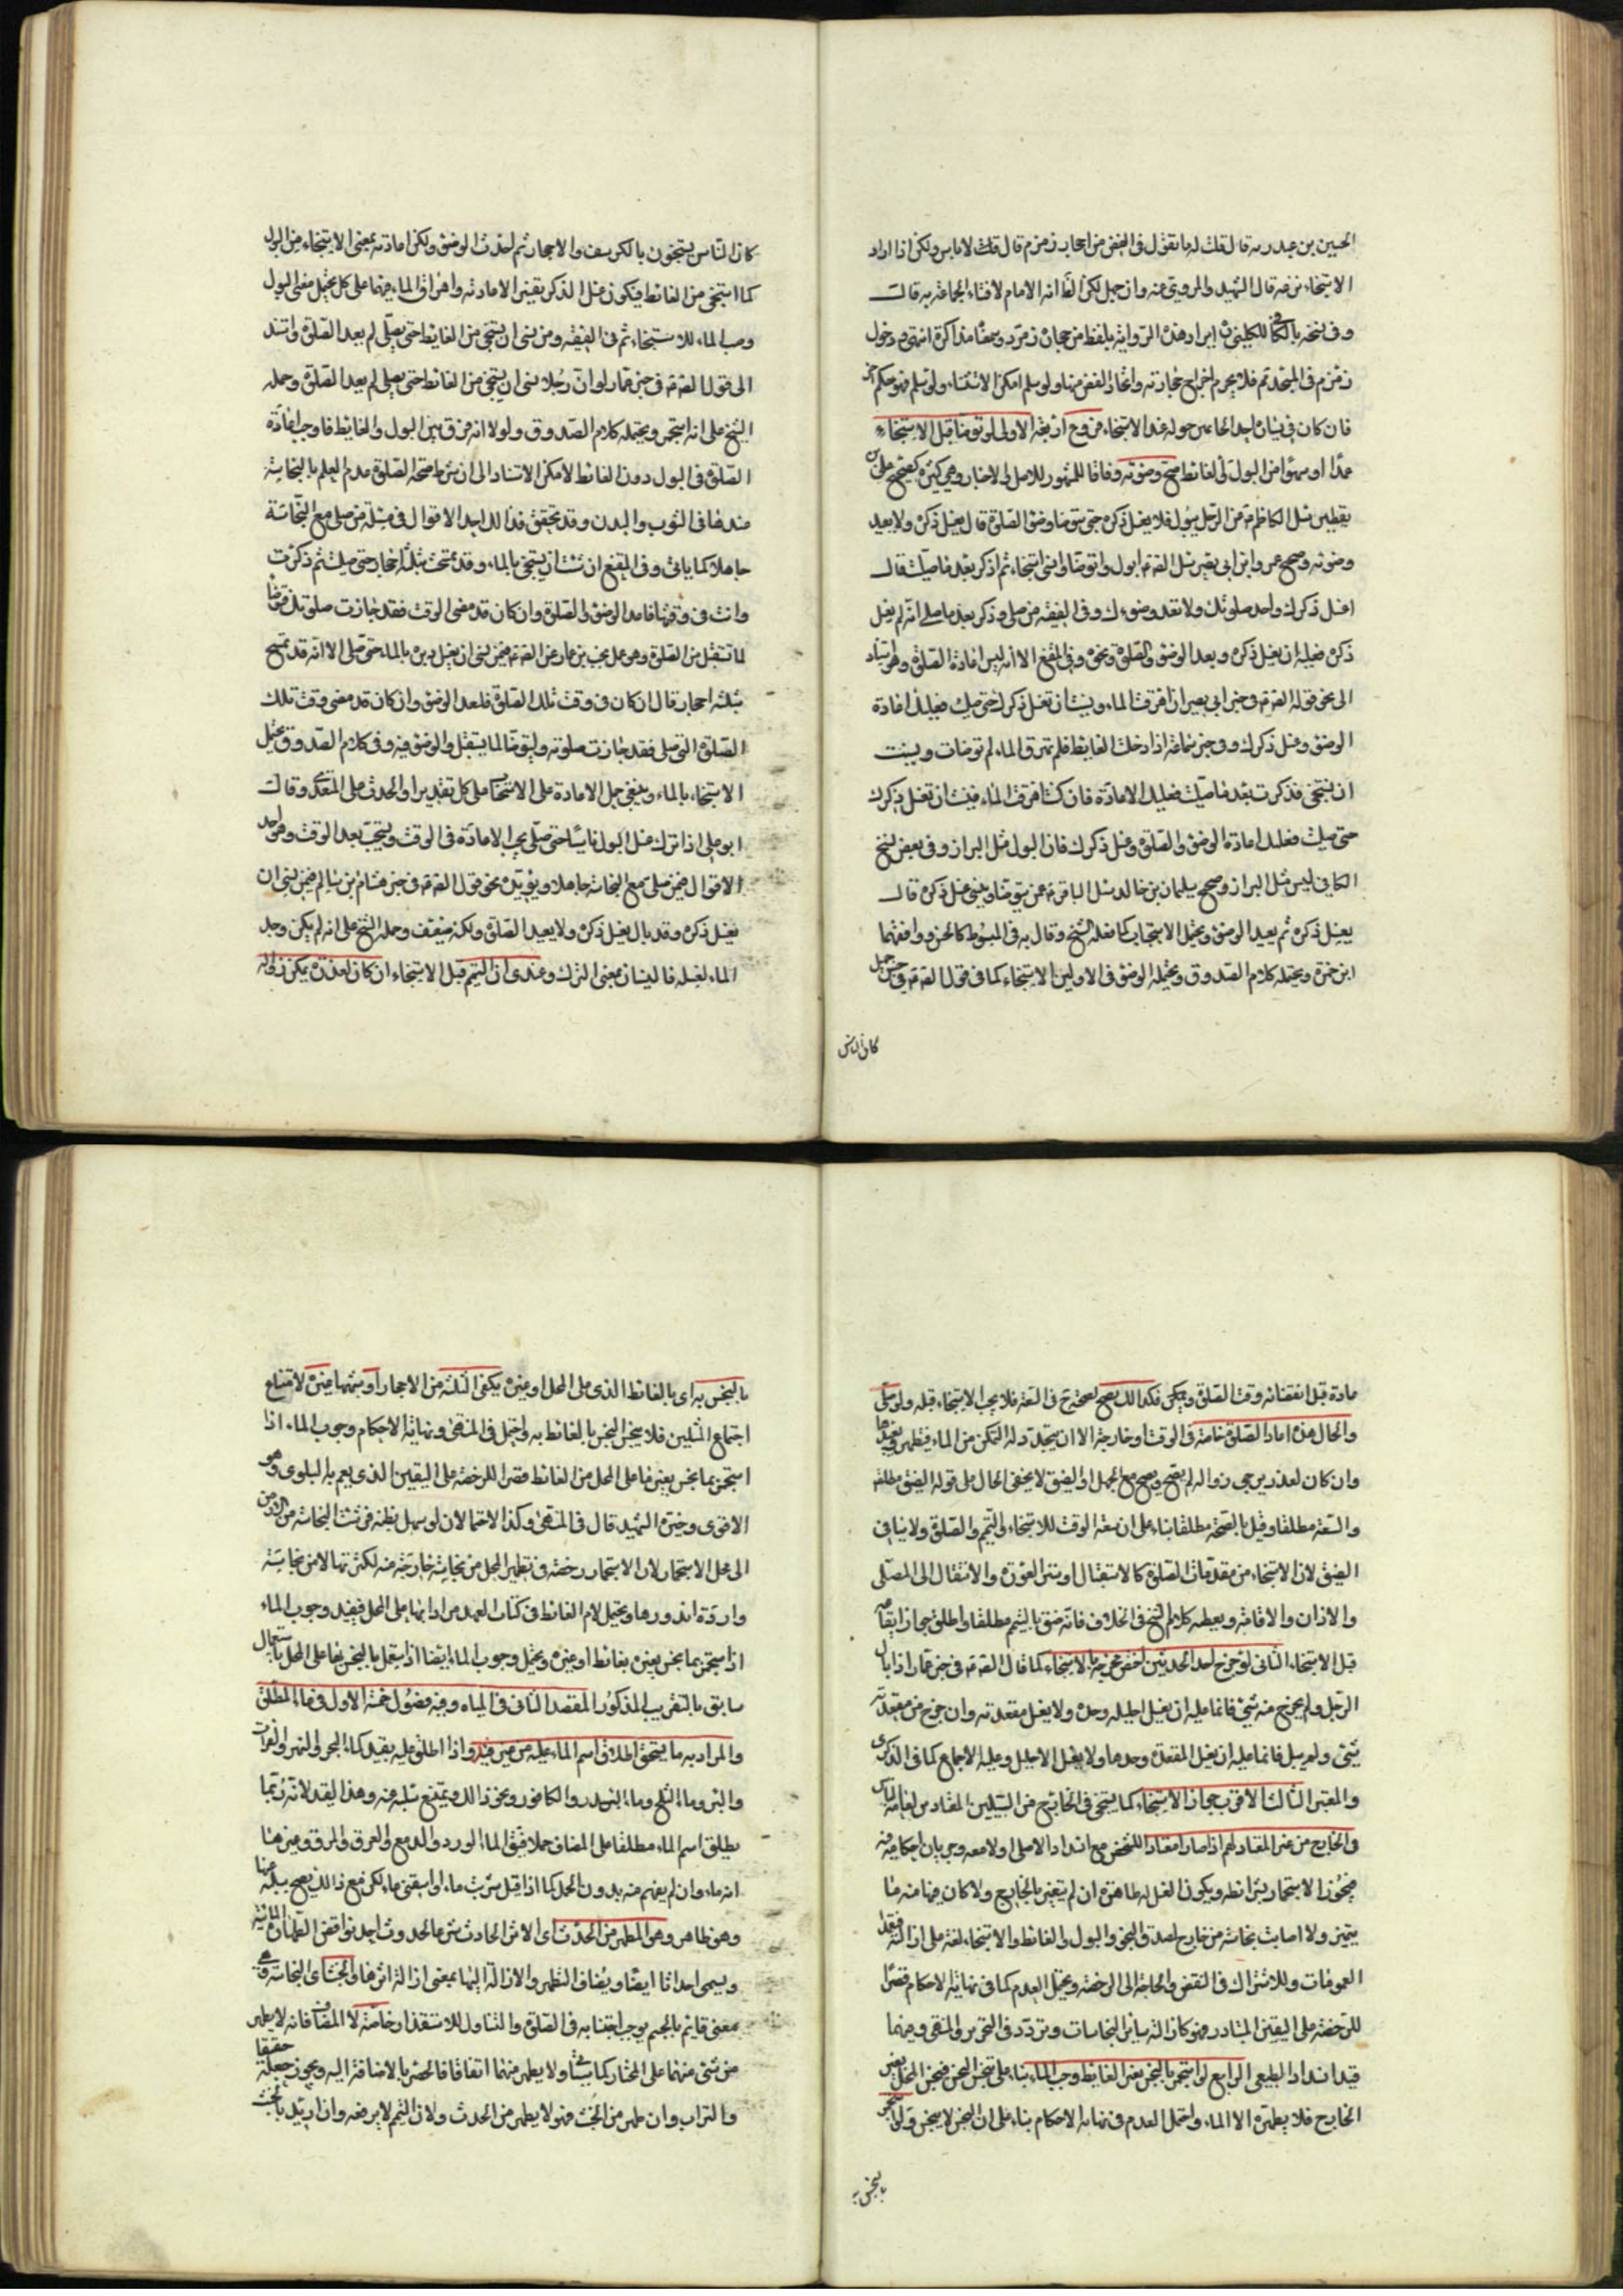 الحسين بن عبد ربه قال قلت له ما تقول فى الفص من احجار زمزم قال قلت لا باس ولكن اذا اراد
الاستنجاء نزعه قال الشهيد والمروى عنه وان جهل لكن الظ انه الامام لافتاء الجماعة به قالت
وفى نسخه بالكافى للكلينى ايراد هذه الرواية بلفظ من حجارة زمرد وسمعنا مذاكرة انتهى ودخول
زمزم فى المسجد ثم فلا يحرم اخراج حجارته واتخاذ الفص منها ولو سلم امكن الاستثناء ولو سلم فهو حكم اخر
فان كان فى يساره احد الخاتمين حوله عند الاستنجاء فروع اربعة الاولى لو توضا قبل الاستنجاء
عمدا او سهوا من البول او الغائط صح وضوئه وفاقا للمشهور للاصل والاخبار وهى كثيرة كصحيح على بن
يقطين سئل الكاظم ع من الرجل يبول فلا يغسل ذكره حتى يتوضا وضوء الصلوة قال يغسل ذكره ولا يعيد
وضوئه وصحيح عمرو ابن ابى نصر سئل الصادق ع ابول واتوضا وانسى استنجاء ثم اذكر بعد ما صليت قال
اغسل ذكرك واعد صلوتك ولا تعد وضوءك وفى الفقيه من صلى وذكر بعد ما صلى انه لم يغسل
ذكره فعليه ان يغسل ذكره ويعد الوضوء والصلوة ونحوه فى المقنع الا انه ليس اعادة الصلوة وهو استناد
الى نحو قوله الصادق ع فى خبر ابى بصير ان اهرقت الماء ونسيت ان تغسل ذكرك حتى صليت فعليك اعادة
الوضوء وغسل ذكرك وفى خبر سماعة اذا دخلت الغائط فلم تهرق الماء ثم توضات ونسيت
ان تستنجى فذكرت بعد ما صليت فعليك الاعادة فان كنت اهرقت الماء فنسيت ان تغسل ذكرك
حتى صليت فعليك اعادة الوضوء والصلوة وغسل ذكرك فان البول مثل البراز وفى بعض نسخ
الكافى ليس مثل البراز وصحيح سليمان بن خالد سئل الباقر ع عمن يتوضا وينسى غسل ذكره قال
يغسل ذكره ثم يعيد الوضوء ويحتمل الاستحباب كما فعله الشيخ وقال به فى المبسوط كالحمزه ووافقهما
ابن حمزة ويحتمله كلام الصدوق ويحتمله الوضوء فى الاولين الاستنجاء كما فى قول الصادق ع فى حسن جميل
كان الناس
كان الناس يستنجون بالكرسف والاحجار ثم احدث الوضوء ولكن اعادته بمعنى الاستنجاء من البول
كما استنجى من الغائط فيكون غسل الذكر يفسر الاعادته واهراق الماء فيهما على كل يحتمل معنى البول
وصب الماء للاستنجاء ثم فى الفقيه ومن نسى ان يستنجى من الغائط حتى يصلى لم يعد الصلوة واستند
الى قول الصادق ع فى خبر عمار لو ان رجلا نسى ان يستنجى من الغائط حتى يصلى لم يعد الصلوة وحمله
الشيخ على انه استجمر ويحتمله كلام الصدوق ولولا انه فرق بين البول والغائط فاوجب اعادة
الصلوة فى البول دون الغائط لامكن الاستناد الى ان شرط صحة الصلوة عدم العلم بالنجاسة
عندها فى الثوب والبدن وقد يحقق فذا لك احد الاقوال فى مسئلة من صلى مع النجاسة
جاهلا كما ياتى وفى المقنع ان نسيت ان تستنجى بالماء وقد تمسحت بثلثة احجار حتى صليت ثم ذكرت
وانت فى وقتها فاعد الوضوء والصلوة وان كان قد مضى الوقت فقد جازت صلوتك فتوضا
لما تستقبل من الصلوة وهو عمل بخبر عمار عن الصادق ع فيمن نسى ان يغسل دبره بالماء حتى صلى الا انه قد تمسح
بثلثة احجار قال ان كان فى وقت تلك الصلوة فليعد الوضوء وان كان قد مضى وقت تلك
الصلوة التى صلى فقد جازت صلوته وليتوضا لما يستقبل والوضوء فيه وفى كلام الصدوق يحتمل
الاستنجاء بالماء وينبغى حمل الاعادة على الاستحباب على كل تقدير او الحدث على المتعدى وقالت
ابو على اذا ترك غسل البول ناسيا حتى صلى يجب الاعادة فى الوقت ويستحب بعد الوقت وهو احد
الاقوال فيمن صلى مع النجاسة جاهلا ويؤيده نحو قول الصادق ع فى خبر هشام بن سالم فيمن نسى ان
يغسل ذكره وقد بال يغسل ذكره ولا يعيد الصلوة ولكنه ضعيف وحمله الشيخ على انه لم يكن وجد
الماء لغسله فالنسيان بمعنى الترك وعندى ان التيمم قبل الاستنجاء ان كان لعذر يمكن زواله
عادة قبل انقضائه وقت الصلوة ولم يكن فكذلك يصح بصحته ح فى السعة فلا يجب الاستنجاء قبله ولو صلى
والحال هذه اعاد الصلوة خاصة فى الوقت او خارجه الا ان يتجدد له التمكن من الماء فتطهر فيعيدها
وان كان لعذر يرجى زواله لم يصح ويصح مع الجهل او الضيق لا يخفى الحال على قوله الضيق مطلقا
والسعة مطلقا وقيل بالصحة مطلقا بناء على ان سعة الوقت للاستنجاء والتيمم والصلوة ولا ينافى
الضيق لان الاستنجاء من مقدمات الصلوة كالاستقبال وستر العورة والانتقال الى المصلى
والاذان والاقامة ويعطيه كلام الشيخ فى الخلاف فانه ضيق بالتيمم مطلقا واطلق جواز ايقاعه
قبل الاستنجاء الثانى لو خرج احد الحدثين اختص مخرجه بالاستنجاء كما قال الصادق ع فى خبر عمار اذا بال
الرجل ولم يخرج منه شئ فانما عليه ان يغسل احليله وحده ولا يغسل مقعدته وان خرج من مقعدته
شئ ولم يبل فانما عليه ان يغسل المقعدة وحدها ولا يغسل الاحليل وعليه الاجماع كما فى الذكرى
والمعتبر الثالث الاقرب جواز الاستنجاء كما يستنجى فى الخارج من السبيلين المعتادين لعامة الناس
فى الخارج من غير المعتاد لهم اذا صار معتادا للشخص مع انسداد الاصلى اولا معه وجريان احكامه فيه
فيجوز الاستجمار بشرائطه ويكون الغسل به طاهرة ان لم يتغير بالخارج ولا كان فيها منه ما
يتميز ولا اصابت نجاسة من خارج لصدق النجو والبول والغائط والاستنجاء لغة على ازالته فتعمه
العمومات وللاشتراك فى النقض والحاجة الى الرخصة ويحتمل العدم كما فى نهاية الاحكام قصرا
للرخصة على اليقين المتبادر فهو كازالة سائر النجاسات وتردد فى التحرير والمنتهى وفيهما
قيد انسداد الطبيعى الرابع لو استجمر بالنجس بغير الغائط وجب الماء بناء على تنجس النجس فينجس المحل بغير
الخارج فلا يطهره الا الماء واحتمل العدم فى نهاية الاحكام بناء على ان النجس لا ينجس ولو استجمر
بالنجس به
بالنجس به اى بالغائط الذى على المحل او غيره يكفى الثلثة من الاحجار او شبهها غيره لامتناع
اجتماع المثلين فلا ينجس النجس بالغائط به واحتمل فى المنتهى ونهاية الاحكام وجوب الماء اذا
استجمر بما نجس بغير ما على المحل من الغائط قصرا للرخصة على اليقين الذى يعم به البلوى وهو
الاقوى وخيرة الشهيد قال فى المنتهى وكذا الاحتمالان لو سهل بطنه فرشت النجاسة من الارض
الى محل الاستجمار لان الاستجمار رخصة فى تطهير المحل من نجاسة خارجة منه لكثرتها لا من نجاسة
واردة لندورها ويحتمل لام الغائط فى كتاب العهد مرادا بها ما على المحل فيفيد وجوب الماء
اذا استجمر بما نجس بعينه بغائط او غيره ويحتمل وجوب الماء ايضا اذا ستعمل بالنجس بما على المحل باستعمال
سابق بالتقريب المذكور المقصد الثانى فى المياه وفيه فصول خمسة الاول فى الماء المطلق
والمراد به ما يستحق اطلاق اسم الماء عليه من غير قيد واذا اطلق عليه بقيد كماء البحر والنهر والفرات
والبئر وماء الثلج وماء السدر والكافور ونحو ذلك ويمتنع سلبه عنه وهذا القيد لانه ربما
يطلق اسم الماء مطلقا على المضاف حملا فيق الماء الورد والدمع والعرق والمرق وغيرها
انه ماء وان لم يفهم منه بدون الحمل كما اذا قيل شربت ماء او اسقنى ماء لكن مع ذلك يصح سلبه عنها
وهو طاهر وهو المطهر من الحدث اى الاثر الحادث شرعا لحدوث احد نواقض الطهارة المائية
ويسمى احداثا ايضا ويضاف التطهر والازالة اليها بمعنى ازالة اثرها والخبث اى النجاسة وهى
معنى قائم بالجسم يوجب اجتنابه فى الصلوة والتناول للاستقذار خاصة لا المضاف فانه لا يطهر
من شئ منهما على المختار كما سياتى ولا يطهر منهما اتفاقا فالحصر بالاضافة اليه ويجوز جعله حقيقا
والتراب وان طهر من الخبث فهو لا يطهر من الحدث ولان التيمم لا يرفعه وان اريد بالخبث